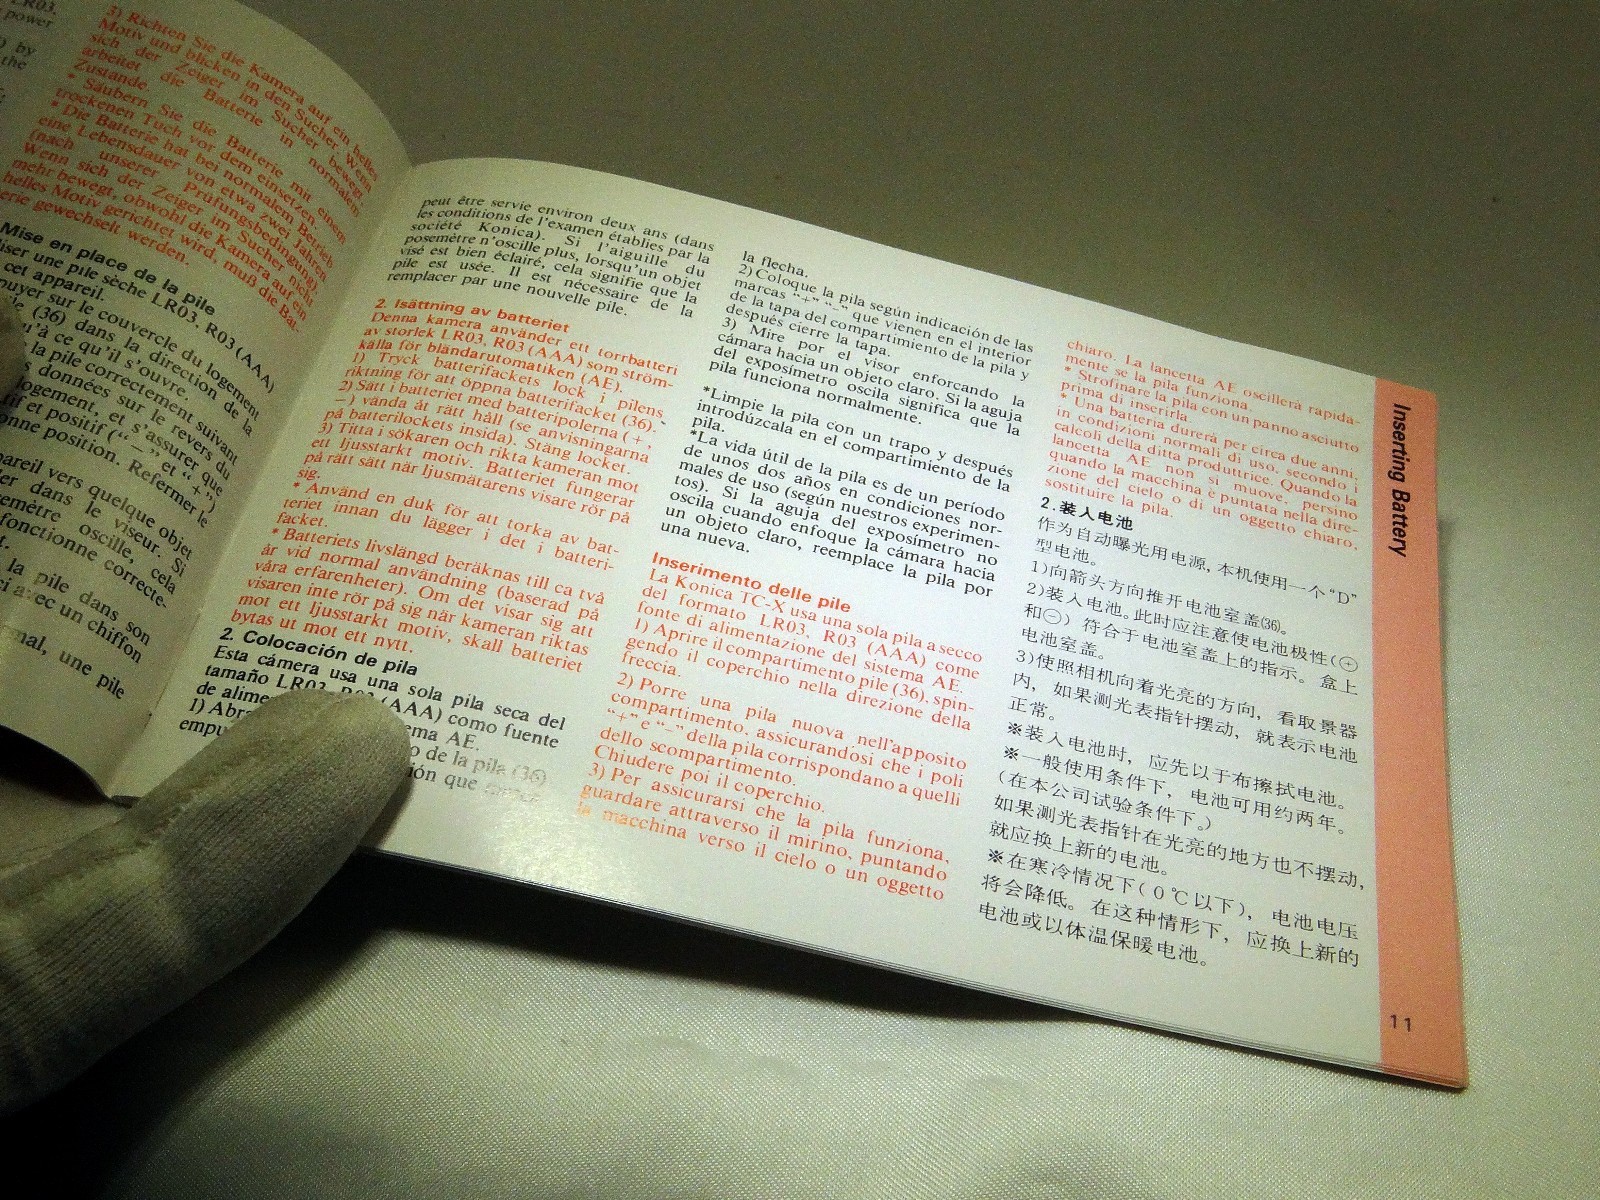 LR03.
power
) by
the
3) Richten Sie die Kamera auf ein helles
Motiv und blicken in den Sucher. Wenn
sich der Zeiger im Sucher bewegt,
arbeitet die Batterie in normalem
Zustande.
* Säubern Sie die Batterie mit einem
trockenen Tuch vor dem einsetzen.
* Die Batterie hat bei normalem Betrieb
eine Lebensdauer von etwa zwei Jahren
(nach unserer Prüfungsbedingung).
Wenn sich der Zeiger im Sucher nicht
mehr bewegt, obwohl die Kamera auf ein
helles Motiv gerichtet wird, muß die Bat-
erie gewechselt werden.
Mise en place de la pile
iser une pile sèche LR03, R03 (AAA)
cet appareil.
puyer sur le couvercle du logement
ie (36) dans la direction de la
qu'à ce qu'il s'ouvre.
la pile correctement suivant
s données sur le revers du
logement, et s'assurer que
tif et positif ("–" et "+")
onne position. Refermer le
pareil vers quelque objet
der dans le viseur. Si
semètre oscille, cela
fonctionne correcte-
t.
la pile dans son
ci avec un chiffon
mal, une pile
peut être servie environ deux ans (dans
les conditions de l'examen établies par la
société Konica). Si l'aiguille du
posemètre n'oscille plus, lorsqu'un objet
visé est bien éclairé, cela signifie que la
pile est usée. Il est nécessaire de la
remplacer par une nouvelle pile.
2. Isättning av batteriet
Denna kamera använder ett torrbatteri
av storlek LR03, R03 (AAA) som ström-
källa för bländarutomatiken (AE).
1) Tryck batterifackets lock i pilens
riktning för att öppna batterifacket (36).
2) Sätt i batteriet med batteripolerna (+,
–) vända åt rått håll (se anvisningarna
på batterilockets insida). Stäng locket.
3) Titta i sökaren och rikta kameran mot
ett ljusstarkt motiv. Batteriet fungerar
på rätt sätt när ljusmätarens visare rör på
sig.
* Använd en duk för att torka av bat-
teriet innan du lägger i det i batteri-
facket.
* Batteriets livslängd beräknas till ca två
år vid normal användning (baserad på
våra erfarenheter). Om det visar sig att
visaren inte rör på sig när kameran riktas
mot ett ljusstarkt motiv, skall batteriet
bytas ut mot ett nytt.
2. Colocación de pila
Esta cámera usa una sola pila seca del
tamaño LR03, R03 (AAA) como fuente
de alime ema AE.
1) Abra o de la pila (36)
empu ión que
la flecha.
2) Coloque la pila según indicación de las
marcas "+" "–" que vienen en el interior
de la tapa del compartimiento de la pila y
después cierre la tapa.
3) Mire por el visor enforcando la
cámara hacia un objeto claro. Si la aguja
del exposímetro oscila significa que la
pila funciona normalmente.
*Limpie la pila con un trapo y después
introdúzcala en el compartimiento de la
pila.
*La vida útil de la pila es de un período
de unos dos años en condiciones nor-
males de uso (según nuestros experimen-
tos). Si la aguja del exposímetro no
oscila cuando enfoque la cámara hacia
un objeto claro, reemplace la pila por
una nueva.
Inserimento delle pile
La Konica TC-X usa una sola pila a secco
del formato LR03, R03 (AAA) come
fonte di alimentazione del sistema AE.
1) Aprire il compartimento pile (36), spin-
gendo il coperchio nella direzione della
freccia.
2) Porre una pila nuova nell'apposito
compartimento, assicurandosi che i poli
"+" e "–" della pila corrispondano a quelli
dello scompartimento.
Chiudere poi il coperchio.
3) Per assicurarsi che la pila funziona,
guardare attraverso il mirino, puntando
la macchina verso il cielo o un oggetto
chiaro. La lancetta AE oscillerà rapida-
mente se la pila funziona.
* Strofinare la pila con un panno asciutto
prima di inserirla.
* Una batteria durerà per circa due anni,
in condizioni normali di uso, secondo i
calcoli della ditta produttrice. Quando la
lancetta AE non si muove, persino
quando la macchina è puntata nella dire-
zione del cielo o di un oggetto chiaro,
sostituire la pila.
2.装入电池
作为自动曝光用电源,本机使用一个"D"
型电池。
1)向箭头方向推开电池室盖(36)。
2)装入电池。此时应注意使电池极性(⊕
和⊖) 符合于电池室盖上的指示。盒上
电池室盖。
3)使照相机向着光亮的方向,看取景器
内,如果测光表指针摆动,就表示电池
正常。
※装入电池时,应先以于布擦拭电池。
※一般使用条件下,电池可用约两年。
(在本公司试验条件下。)
如果测光表指针在光亮的地方也不摆动,
就应换上新的电池。
※在寒冷情况下(0℃以下),电池电压
将会降低。在这种情形下,应换上新的
电池或以体温保暖电池。
Inserting Battery
11